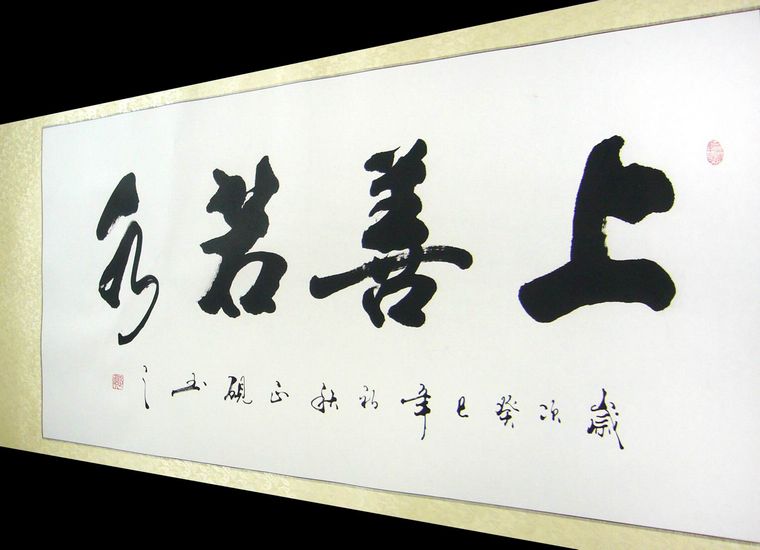 上善若水
歲次癸巳年初秋正硯書